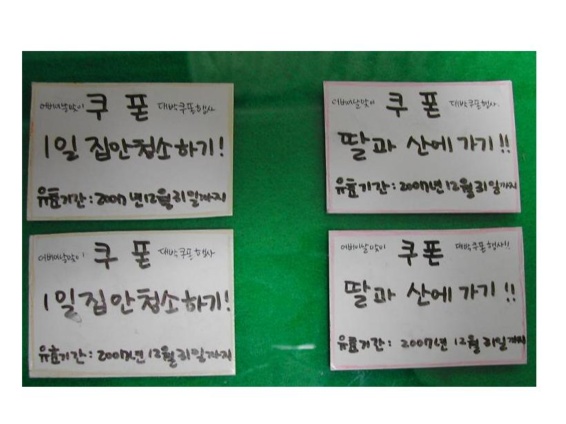 어버이날맞이 쿠폰 대박쿠폰행사
1일 집안청소하기!
유효기간 : 2007년 12월 31일까지
어버이날맞이 쿠폰 대박쿠폰행사
딸과 산에 가기!!
유효기간 : 2007년 12월 31일까지
어버이날맞이 쿠폰 대박쿠폰행사
1일 집안청소하기!
유효기간 : 2007년 12월 31일까지
어버이날맞이 쿠폰 대박쿠폰행사!!
딸과 산에 가기!!
유효기간 : 2007년 12월 31일까지